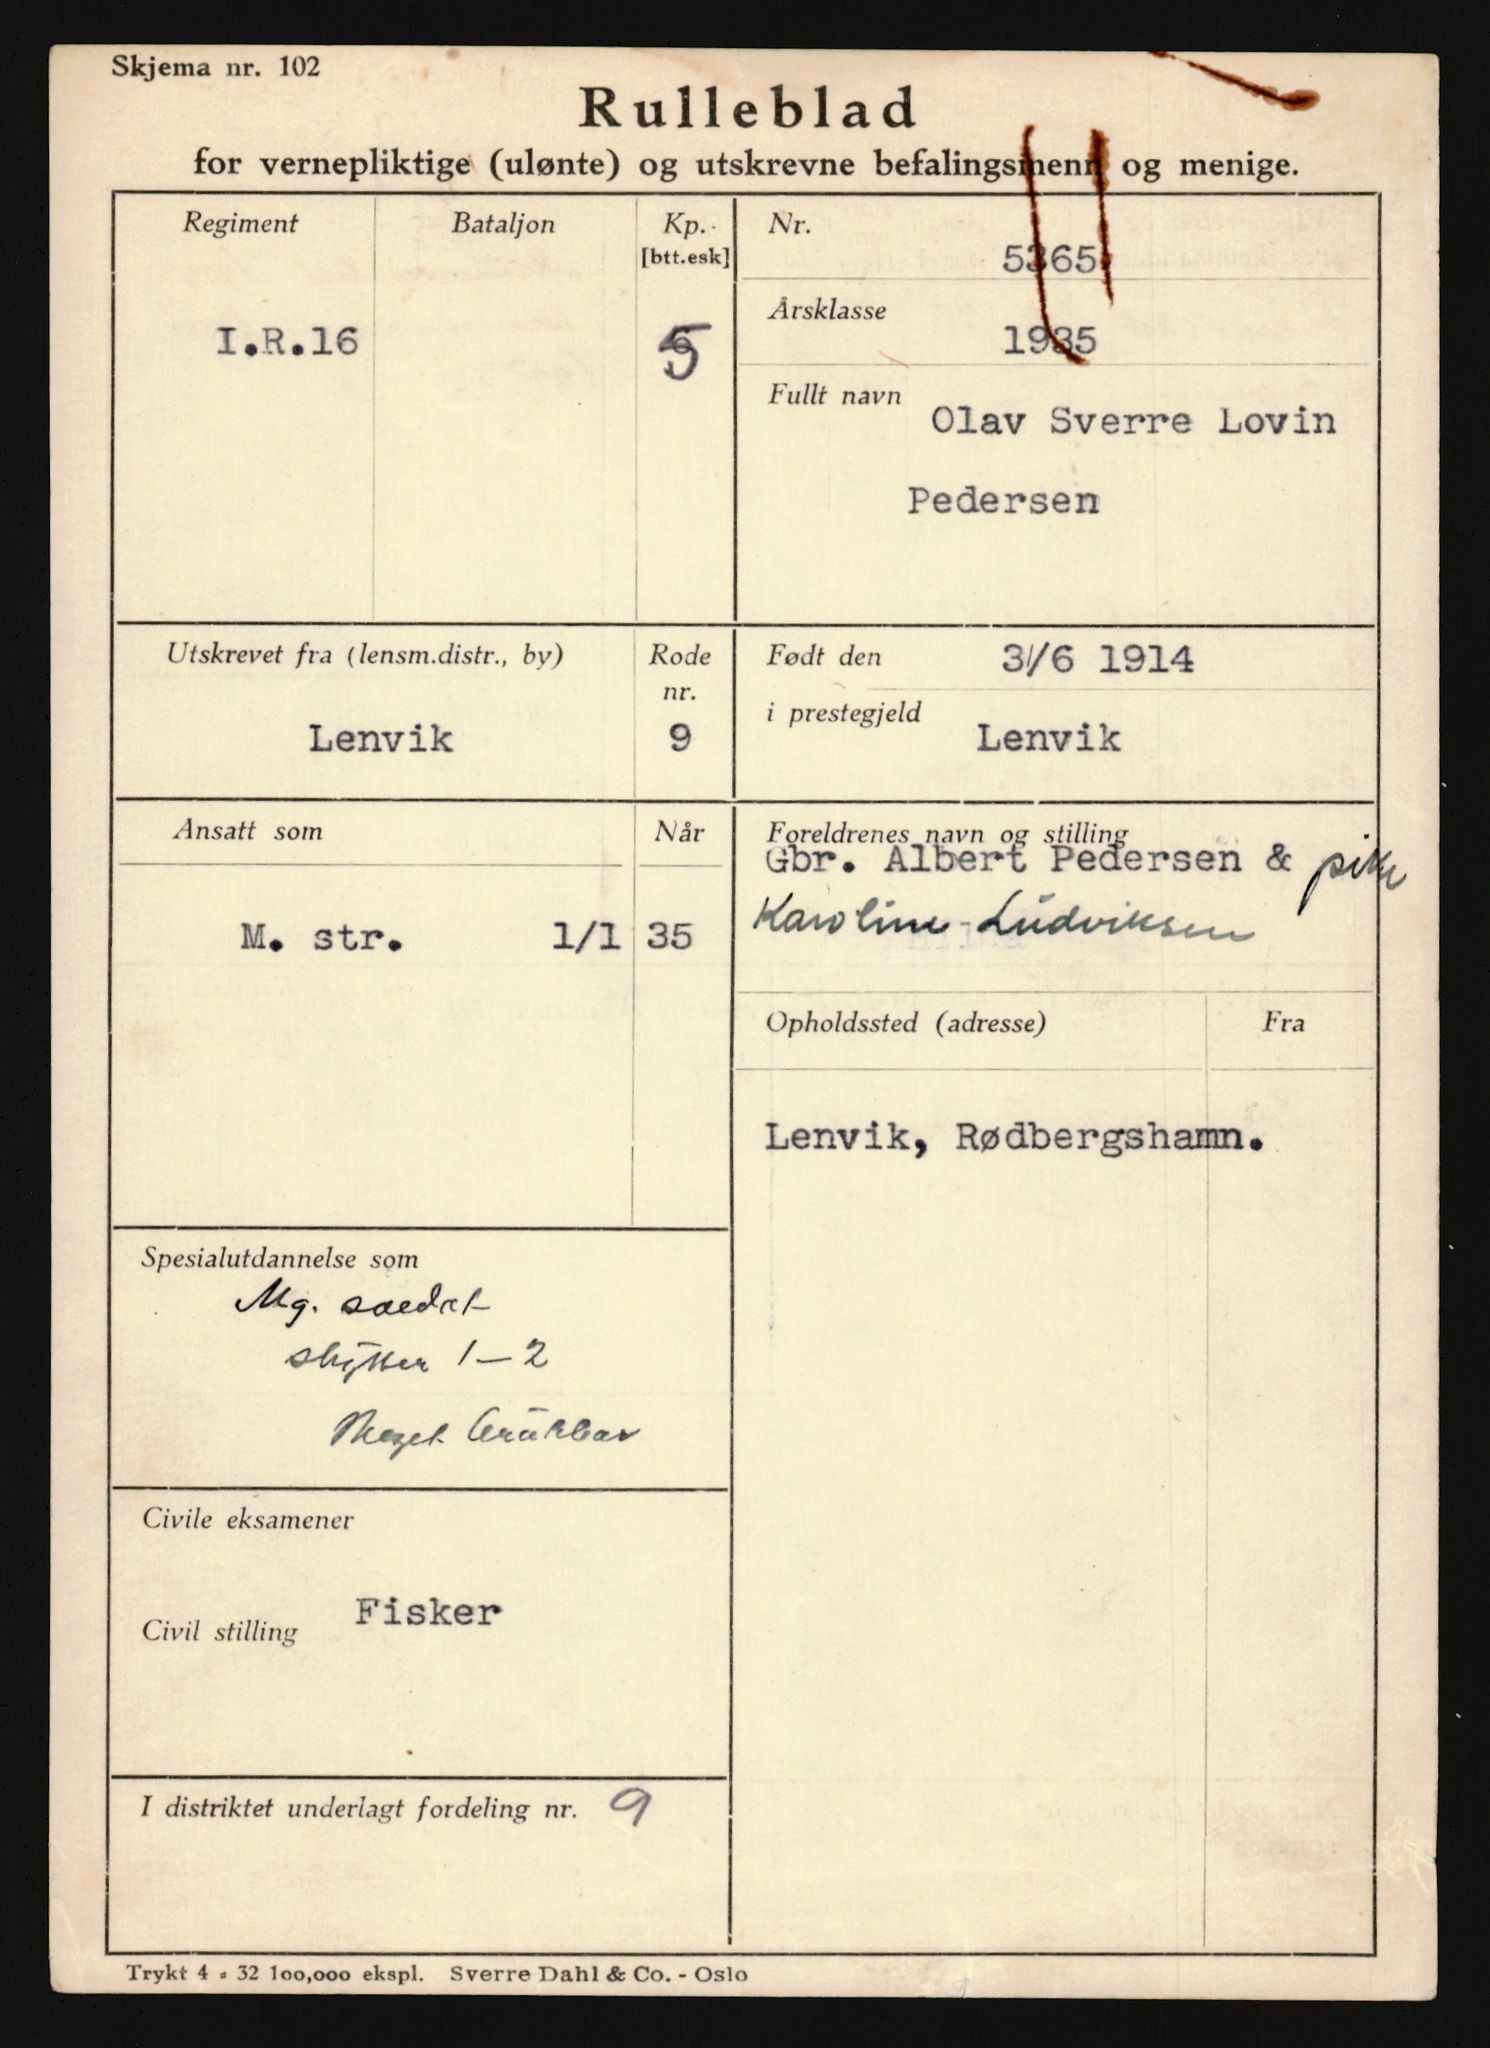 Skjema nr. 102
Rulleblad
for vernepliktige (ulønte) og utskrevne befalingsmenn og menige.
Regiment
Bataljon
Kp.
[btt.esk]
I.R.16
5
Nr.
5365
Årsklasse
1935
Fullt navn
Olav Sverre Lovin
Pedersen
Utskrevet fra (lensm.distr., by)
Rode
nr.
Lenvik
9
Født den
3/6 1914
i prestegjeld
Lenvik
Ansatt som
Når
M. str.
1/1 35
Foreldrenes navn og stilling
Gbr. Albert Pedersen & pike
Karoline Ludviksen
Opholdssted (adresse)
Fra
Lenvik, Rødbergshamn.
Spesialutdannelse som
Mg. soldat
skytter 1-2
Meget brukbar
Civile eksamener
Civil stilling
Fisker
I distriktet underlagt fordeling nr. 9
Trykt 4 - 32 100,000 ekspl. Sverre Dahl & Co. - Oslo